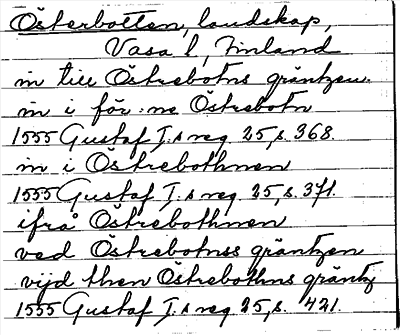 Österbotten, landskap,
Vasa l, Finland
in till Östrebotns gräntzen.
in i för:ne Östrebotn
1555 Gustaf I:s reg. 25, s. 368.
in i Östrebothnen
1555 Gustaf I:s reg. 25, s. 371.
ifrå Östrebothnen
ved Östrebotnss gräntzen
vijd then Östrebothns gräntz
1555 Gustaf I:s reg 25, s. 421.